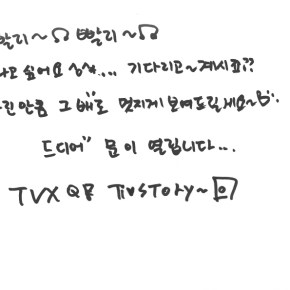 빨리~ 빨리~
고 싶어요 ^^.... 기다리고~계시죠??
린 만큼 그 배로 멋지게 보여드릴게요~
드디어" 문이 열립니다...
TVXQ Tistory~